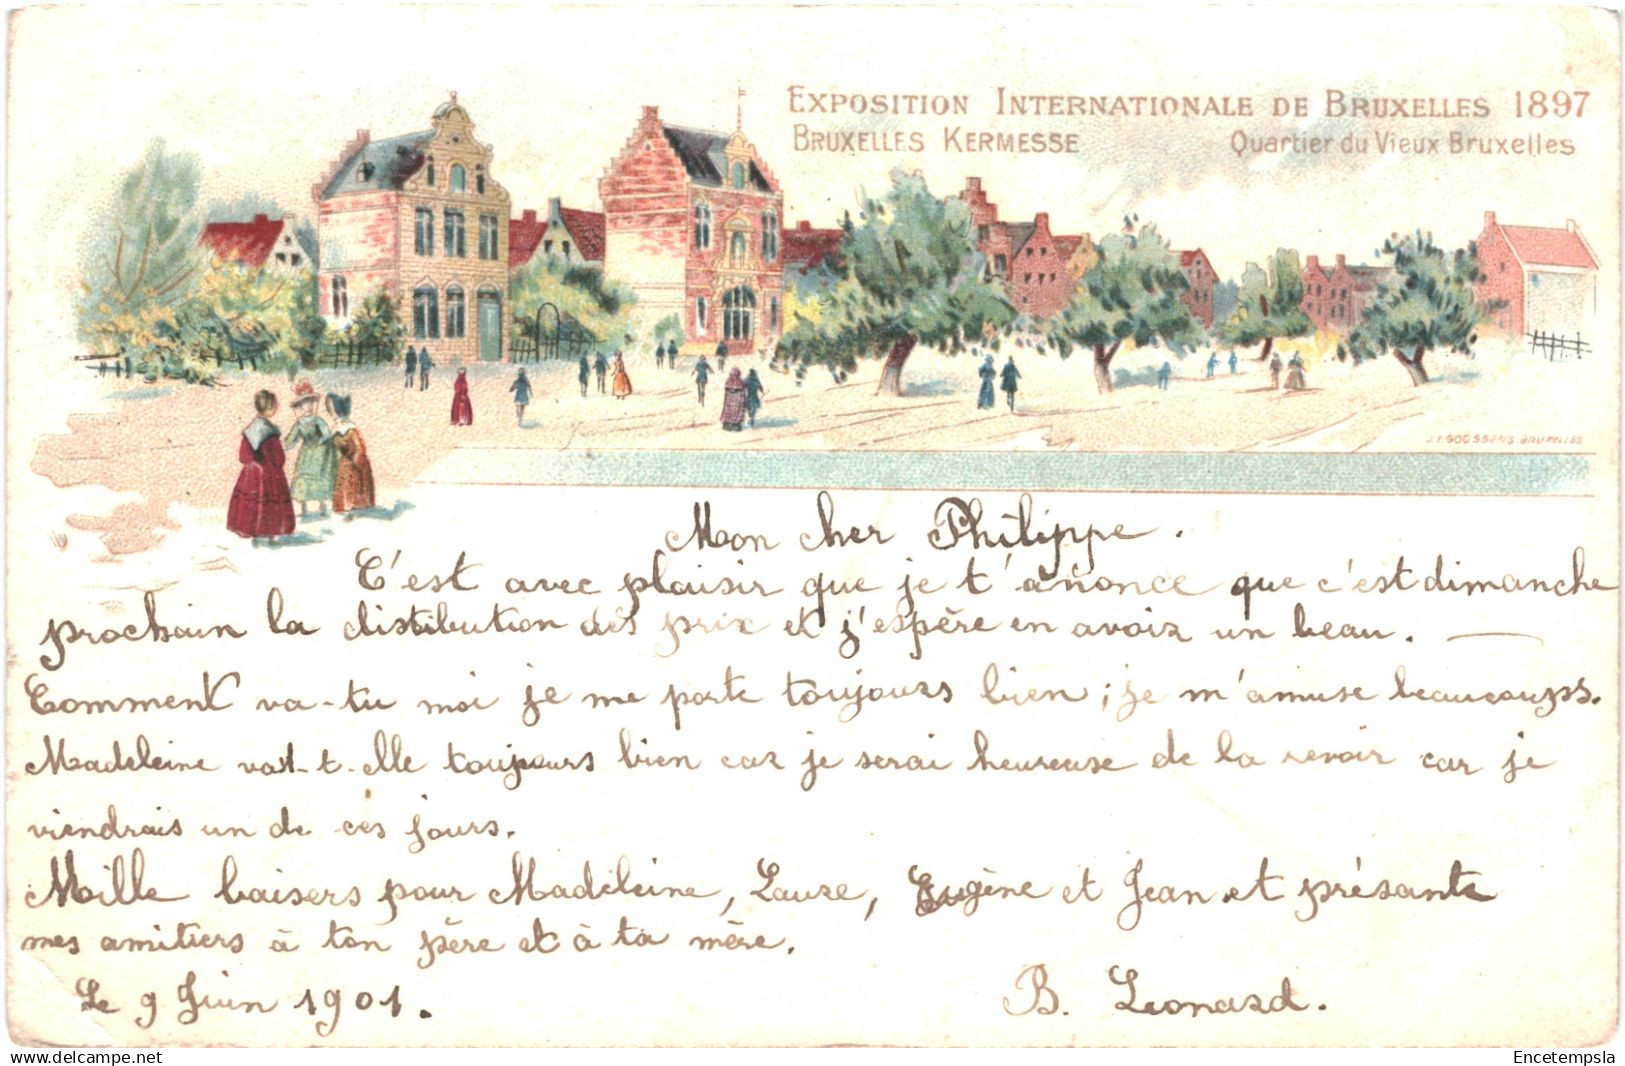 EXPOSITION INTERNATIONALE DE BRUXELLES 1897
BRUXELLES KERMESSE Quartier du Vieux Bruxelles
J.L. GOOSSENS BRUXELLES
Mon cher Philippe.
C'est avec plaisir que je t'anonce que c'est dimanche
prochain la distribution des prix et j'espère en avoir un beau. —
Comment va-tu moi je me porte toujours bien; je m'amuse beaucoups.
Madeleine vat-t-elle toujours bien car je serai heureuse de la revoir car je
viendrais un de ces jours.
Mille baisers pour Madeleine, Laure, Eugène et Jean et présante
mes amitiers à ton père et à ta mère.
Le 9 Juin 1901. B. Leonard.
Encetempsla